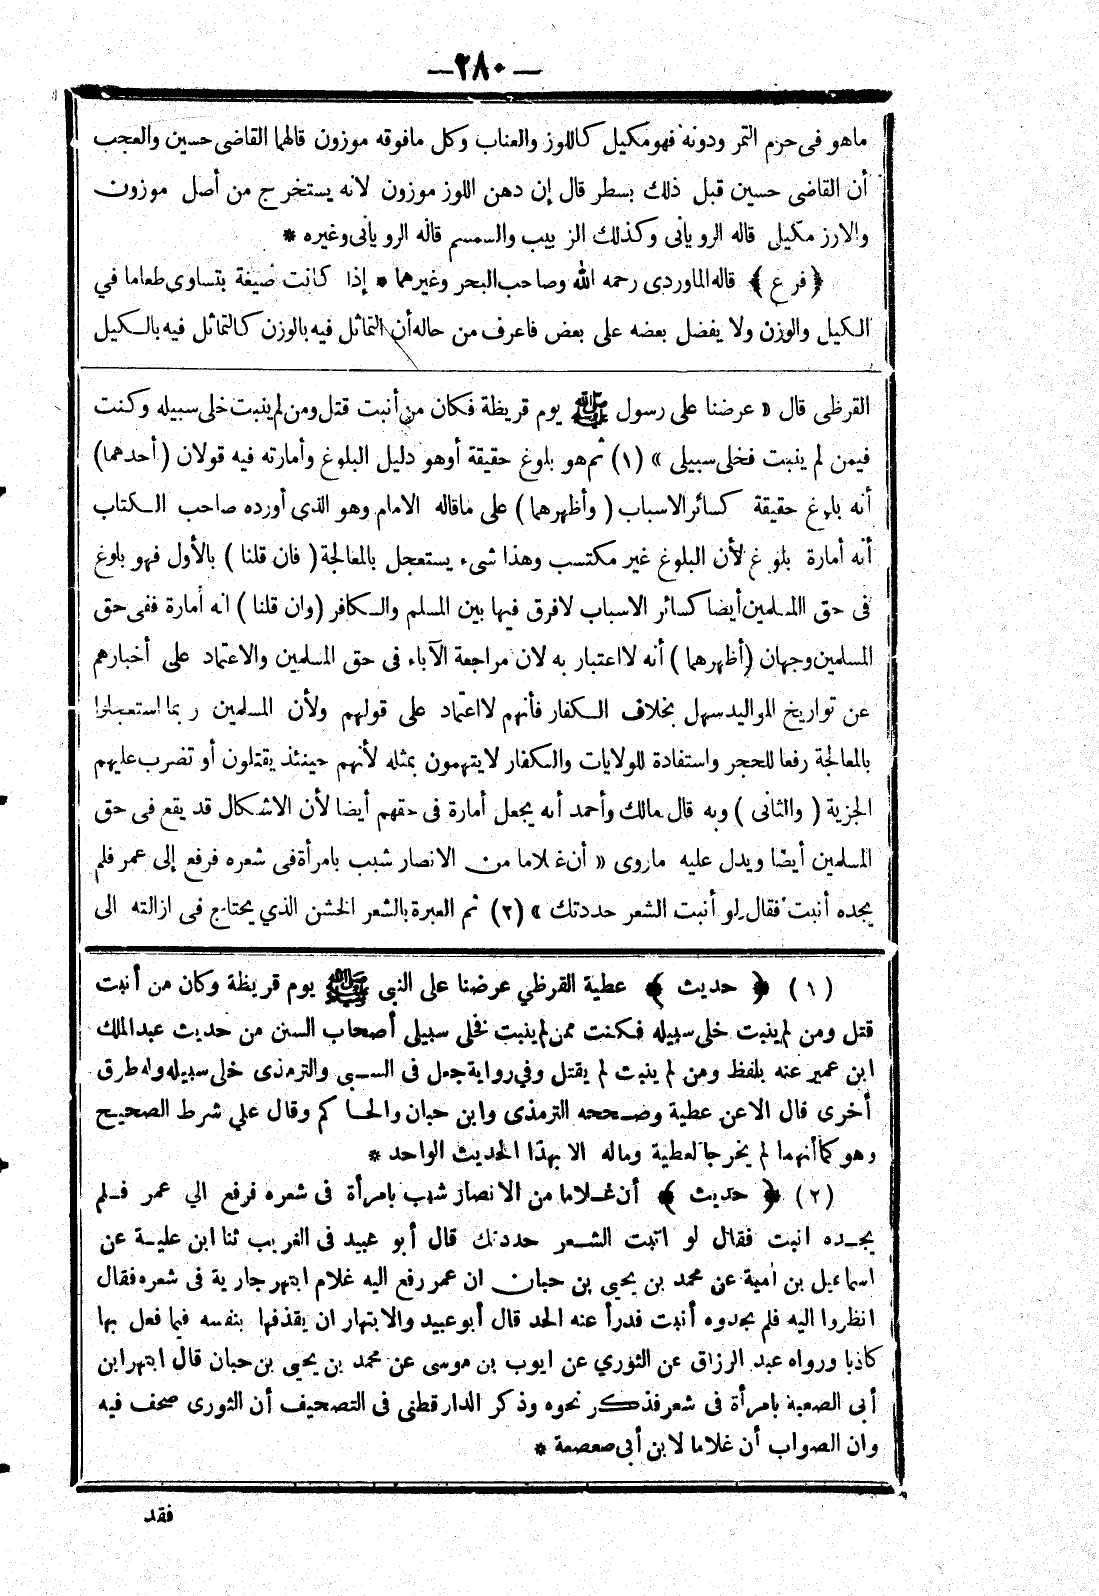 —٢٨٠—
ماهو فى حزم التمر ودونه فهو مكيل كاللوز والعناب وكل مافوقه موزون قالهما القاضى حسين والعجب
أن القاضى حسين قبل ذلك بسطر قال إن دهن اللوز موزون لانه يستخرج من أصل موزون
والارز مكيل قاله الرويانى وكذلك الزبيب والسمسم قاله الرويانى وغيره *
﴿ فرع ﴾ قاله الماوردى رحمه الله وصاحب البحر وغيرهما * إذا كانت ضيفة بتساوى طعاما في
الكيل والوزن ولا يفضل بعضه على بعض فاعرف من حاله أن التماثل فيه بالوزن كالتماثل فيه بالكيل
القرظى قال « عرضنا على رسول ﷺ يوم قريظة فكان من أنبت قتل ومن لم ينبت خلى سبيله وكنت
فيمن لم ينبت فخلى سبيلى » (١) ثم هو بلوغ حقيقة أوهو دليل البلوغ وأمارته فيه قولان (أحدهما)
أنه بلوغ حقيقة كسائر الاسباب (وأظهرهما) على ماقاله الامام وهو الذى أورده صاحب الكتاب
أنه أمارة بلوغ لأن البلوغ غير مكتسب وهذا شىء يستعجل بالمعالجة (فان قلنا) بالأول فهو بلوغ
فى حق المسلمين أيضا كسائر الاسباب لافرق فيها بين المسلم والكافر (وان قلنا) انه أمارة ففى حق
المسلمين وجهان (أظهرهما) أنه لااعتبار به لان مراجعة الآباء فى حق المسلمين والاعتماد على أخبارهم
عن تواريخ المواليد سهل بخلاف الكفار فأنهم لااعتماد على قولهم ولأن المسلمين ربما استعجلوا
بالمعالجة رفعا للحجر واستفادة للولايات والكفار لايتهمون بمثله لأنهم حينئذ يقتلون أو تضرب عليهم
الجزية (والثانى) وبه قال مالك وأحمد أنه يجعل أمارة فى حقهم أيضا لأن الاشكال قد يقع فى حق
المسلمين أيضا ويدل عليه ماروى « أن غلاما من الانصار شبب بامرأة فى شعره فرفع إلى عمر فلم
يجده أنبت فقال لو أنبت الشعر حددتك » (٢) ثم العبرة بالشعر الخشن الذي يحتاج فى ازالته الى
(١) ﴿ حديث ﴾ عطية القرظي عرضنا على النبى ﷺ يوم قريظة وكان من أنبت
قتل ومن لم ينبت خلى سبيله فكنت ممن لم ينبت فخلى سبيلى أصحاب السنن من حديث عبدالملك
ابن عمير عنه بلفظ ومن لم ينبت لم يقتل وفي رواية جعل فى السبى والترمذى خلى سبيله وله طرق
أخرى قال الاعن عطية وصححه الترمذى وابن حبان والحاكم وقال علي شرط الصحيح
وهو كما أنهما لم يخرجا لعطية وماله الا بهذا الحديث الواحد *
(٢) ﴿ حديث ﴾ أن غلاما من الانصار شبب بامرأة فى شعره فرفع الي عمر فلم
يجده انبت فقال لو انبت الشعر حددتك قال أبو عبيد فى الغريب ثنا ابن علية عن
اسماعيل بن أمية عن محمد بن يحيي بن حبان ان عمر رفع اليه غلام ابتهر جارية فى شعره فقال
انظروا اليه فلم يجدوه أنبت فدرأ عنه الحد قال أبو عبيد والابتهار ان يقذفها بنفسه فيما فعل بها
كاذبا ورواه عبد الرزاق عن الثوري عن ايوب بن موسى عن محمد بن يحيى بن حبان قال ابتهر ابن
أبى الصعبة بامرأة فى شعر فذكر نحوه وذكر الدارقطنى فى التصحيف أن الثورى صحف فيه
وان الصواب أن غلاما لابن أبى صعصعة *
فقد